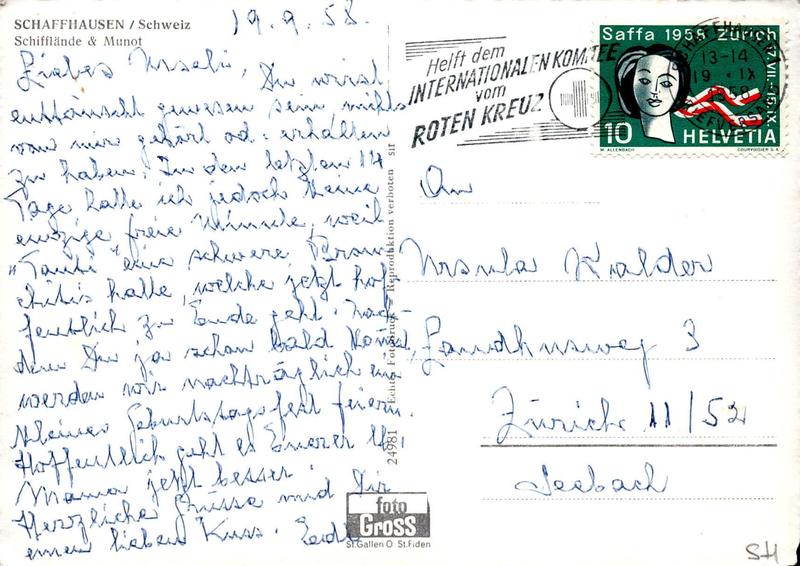 SCHAFFHAUSEN / Schweiz
Schifflände & Munot
19.9.58.
Liebes Urseli, Du wirst
enttäuscht gewesen sein nichts
von mir gehört od. erhalten
zu haben. In den letzten 14
Tage hatte ich jedoch keine
einzige freie Minute, weil
"Tanti" eine schwere Bron-
chitis hatte, welche jetzt hof-
fentlich zu Ende geht. Nach-
dem Du ja schon bald kommst,
werden wir nachträglich ein
kleines Geburtstagsfest feiern.
Hoffentlich geht es Eurer
Mama jetzt besser.
Herzliche Grüsse und Dir
einen lieben Kuss.
Echte Fotodruck = Reproduktion verboten sif
24981
foto
Gross
St.Gallen O St.Fiden
Helft dem
INTERNATIONALEN KOMITEE
vom
ROTEN KREUZ
SCHAFFHAUSEN
13-14
19.IX
1958
Saffa 1958 Zürich
17.VII.-15.IX.
10
HELVETIA
M. ALLENBACH
COURVOISIER S.A.
An
Ursula Kalder
Landhusweg 3
Zürich 11/52
Seebach
SH